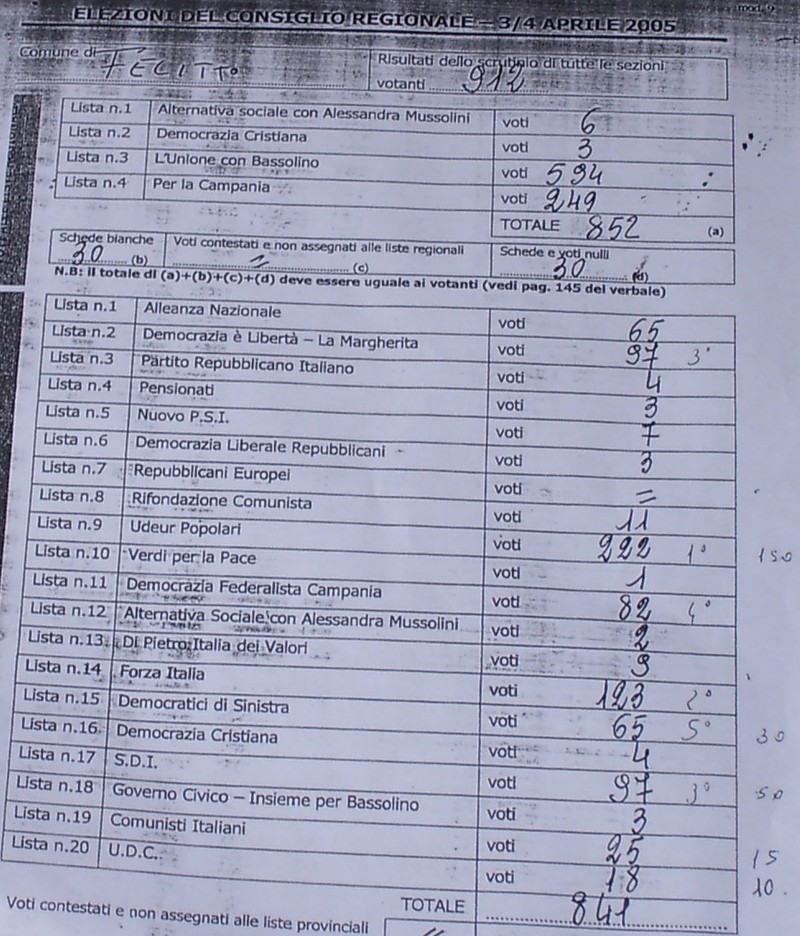 mod. 9
ELEZIONI DEL CONSIGLIO REGIONALE – 3/4 APRILE 2005
Comune di FELITTO
Risultati dello scrutinio di tutte le sezioni
votanti 912
Lista n.1 Alternativa sociale con Alessandra Mussolini voti 6
Lista n.2 Democrazia Cristiana voti 3
Lista n.3 L'Unione con Bassolino voti 594
Lista n.4 Per la Campania voti 249
TOTALE 852 (a)
Schede bianche 30 (b)
Voti contestati e non assegnati alle liste regionali = (c)
Schede e voti nulli 30 (d)
N.B: il totale di (a)+(b)+(c)+(d) deve essere uguale ai votanti (vedi pag. 145 del verbale)
Lista n.1 Alleanza Nazionale voti 65
Lista n.2 Democrazia è Libertà – La Margherita voti 97 3°
Lista n.3 Partito Repubblicano Italiano voti 4
Lista n.4 Pensionati voti 3
Lista n.5 Nuovo P.S.I. voti 7
Lista n.6 Democrazia Liberale Repubblicani voti 3
Lista n.7 Repubblicani Europei voti =
Lista n.8 Rifondazione Comunista voti 11
Lista n.9 Udeur Popolari voti 222 1° 150
Lista n.10 Verdi per la Pace voti 1
Lista n.11 Democrazia Federalista Campania voti 82 4°
Lista n.12 Alternativa Sociale con Alessandra Mussolini voti 2
Lista n.13 Di Pietro Italia dei Valori voti 9
Lista n.14 Forza Italia voti 123 2°
Lista n.15 Democratici di Sinistra voti 65 5° 30
Lista n.16 Democrazia Cristiana voti 4
Lista n.17 S.D.I. voti 97 3° 50
Lista n.18 Governo Civico – Insieme per Bassolino voti 3
Lista n.19 Comunisti Italiani voti 25 15
Lista n.20 U.D.C. voti 18 10
TOTALE 841
Voti contestati e non assegnati alle liste provinciali